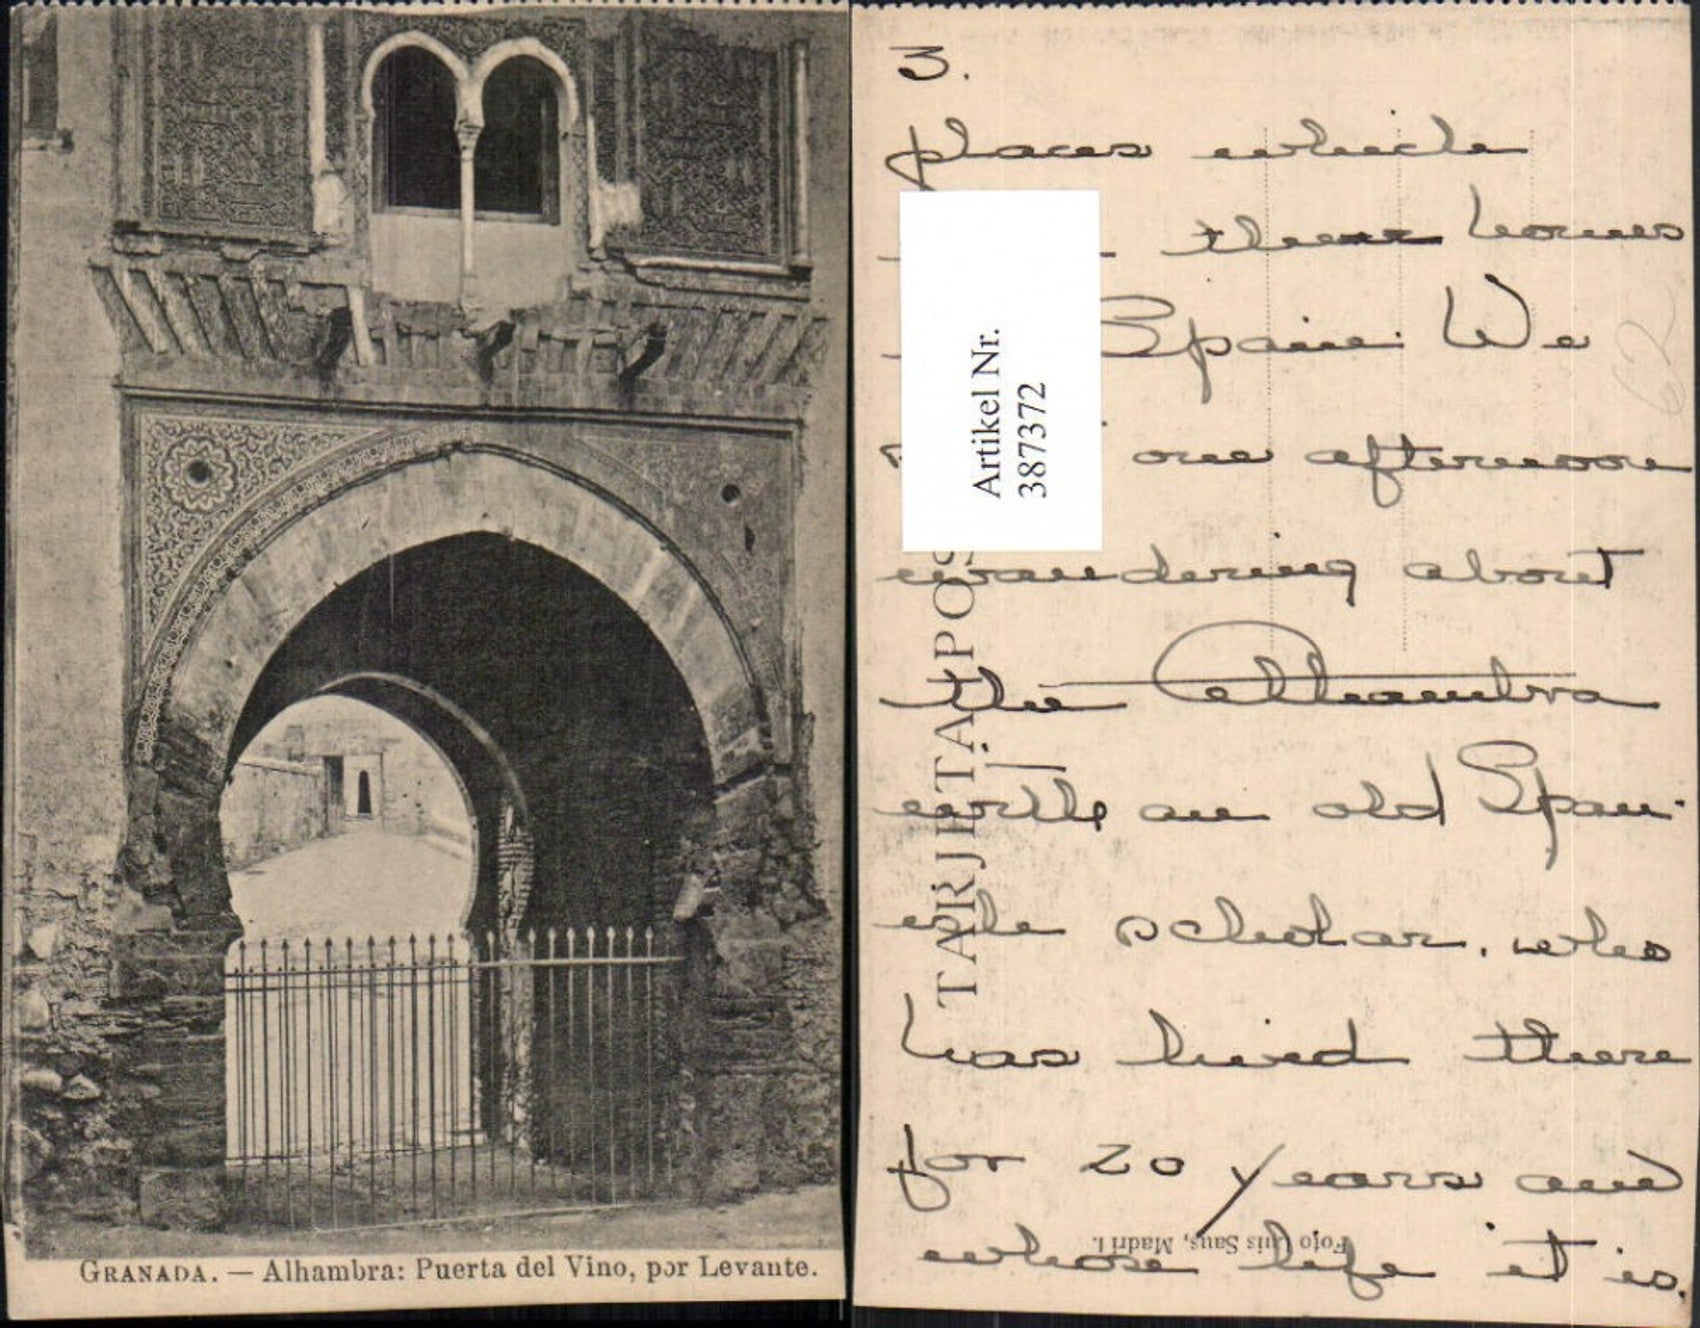 GRANADA. — Alhambra: Puerta del Vino, por Levante.
3.
places which
their homes
Spain. We
one afternoon
wandering about
the Alhambra
with an old Span-
ish scholar. who
has lived there
for 20 years and
whose life it is.
Artikel Nr.
387372
TARJETA POS
Foto Luis Saus, Madri l.
62